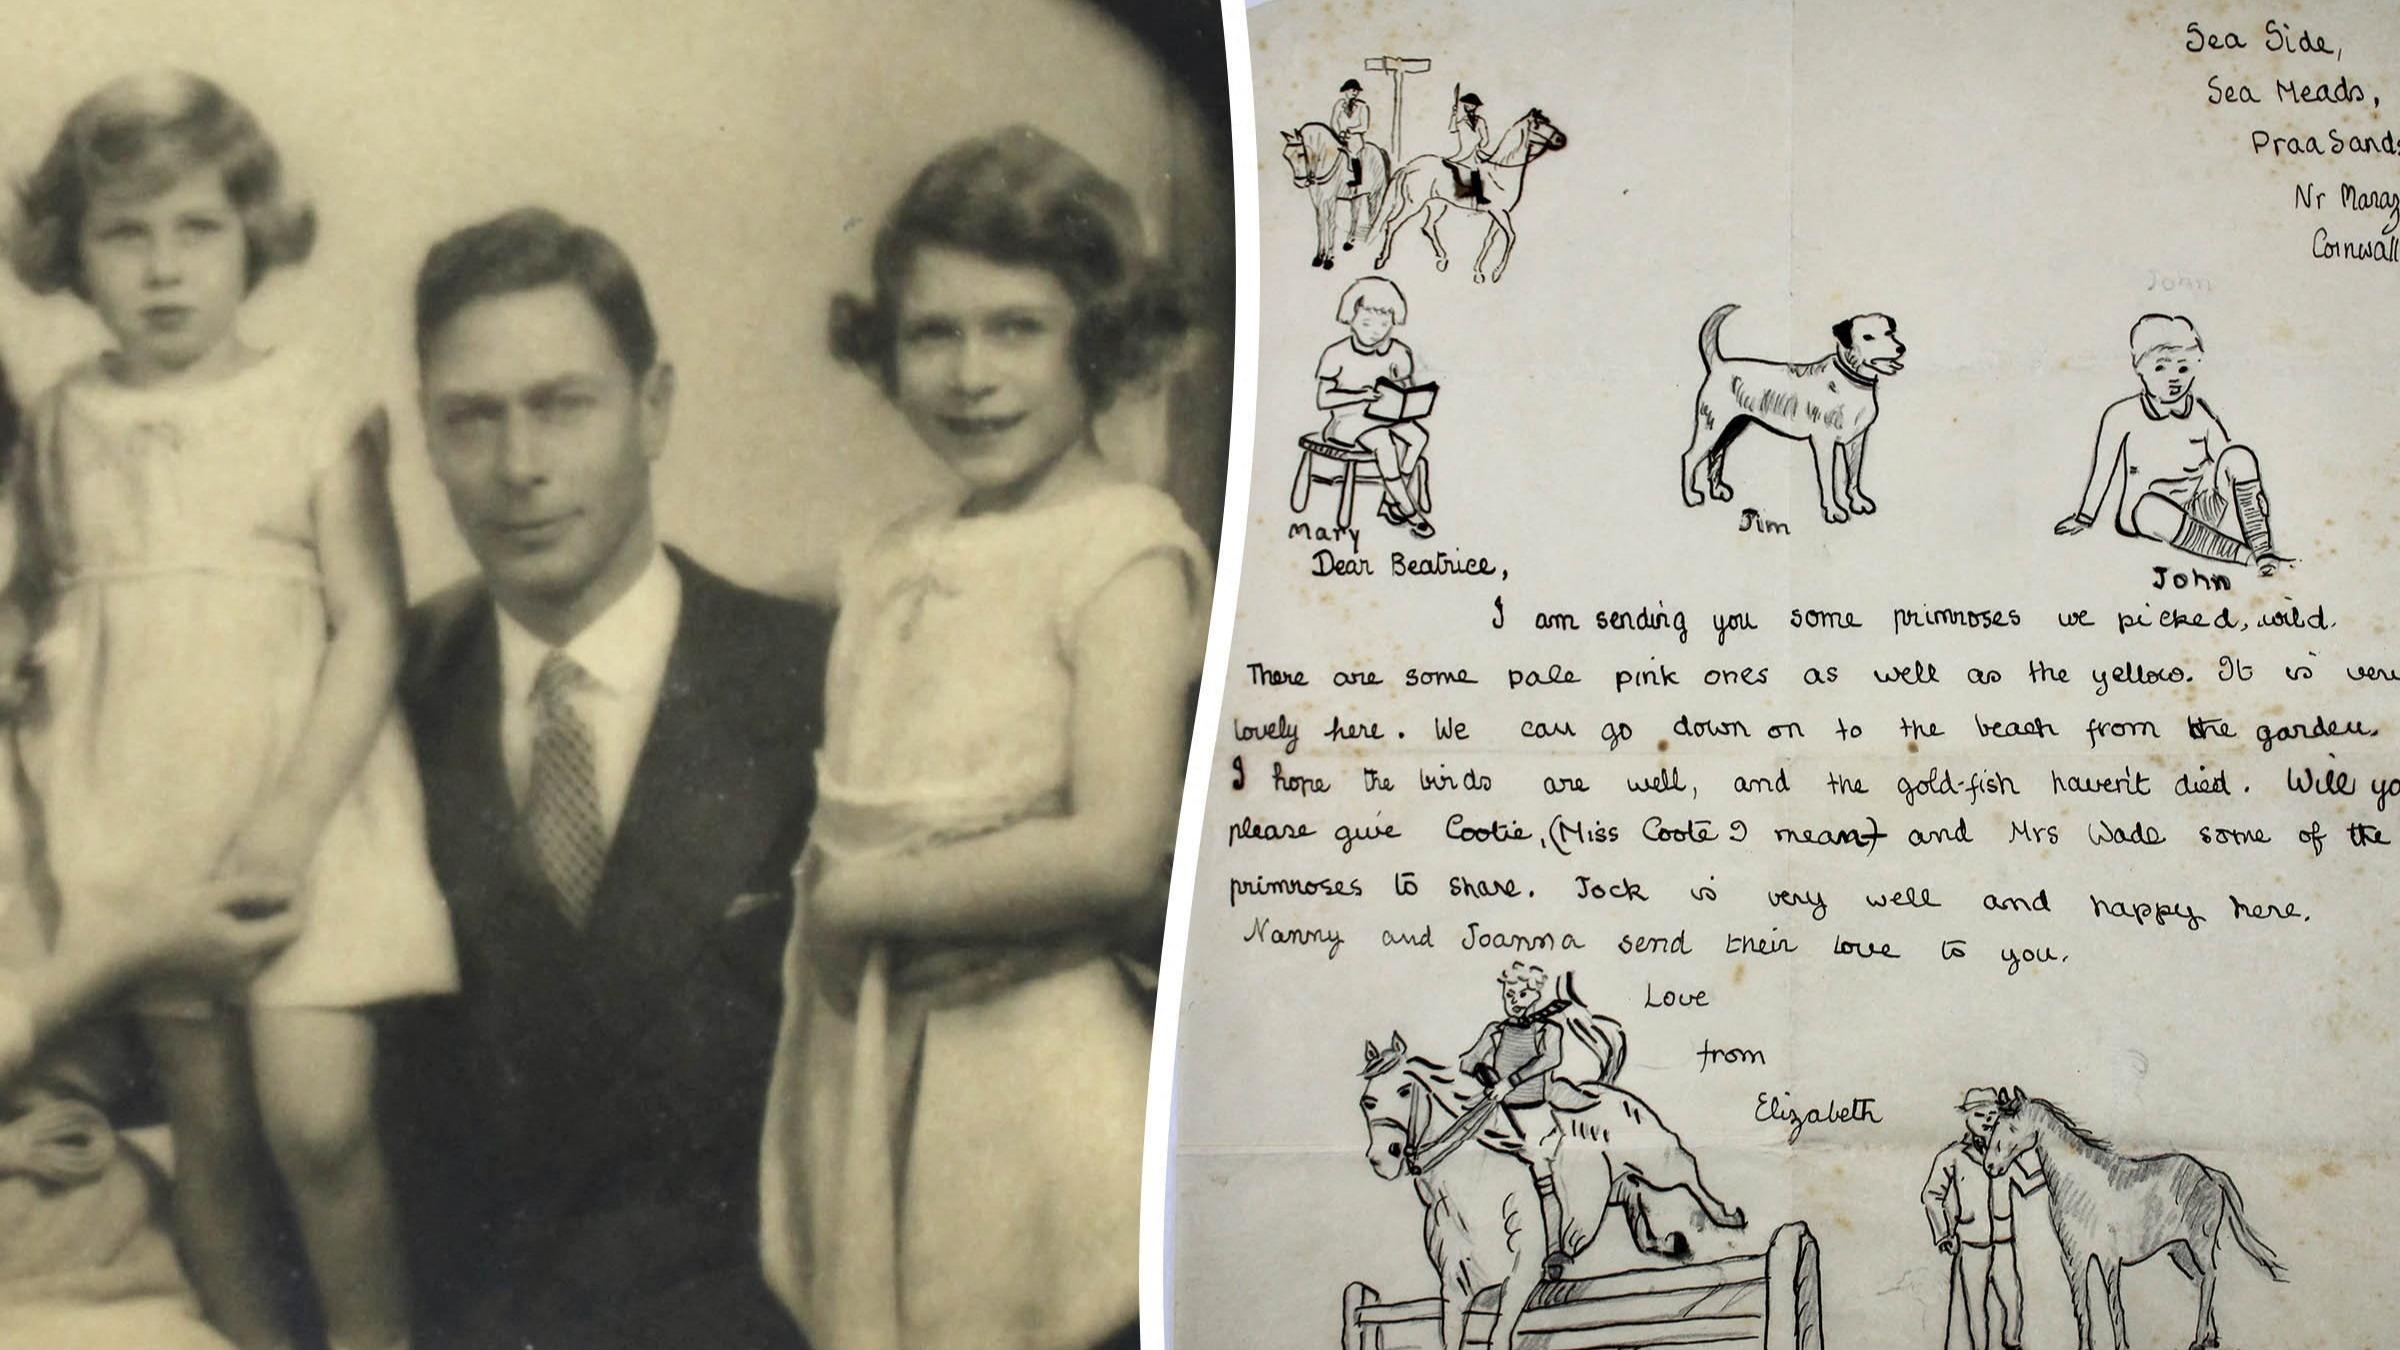 Sea Side,
Sea Meads,
Praa Sands
Nr
Cornwall
John
Mary
Jim
John
Dear Beatrice,
I am sending you some primroses we picked, wild.
There are some pale pink ones as well as the yellow. It is
lovely here. We can go down on to the beach from the garden.
I hope the birds are well, and the gold-fish haven't died. Will
please give Cootie, (Miss Coote I mean) and Mrs Wade some of the
primroses to share. Jock is very well and happy here.
Nanny and Joanna send their love to you.
Love
from
Elizabeth